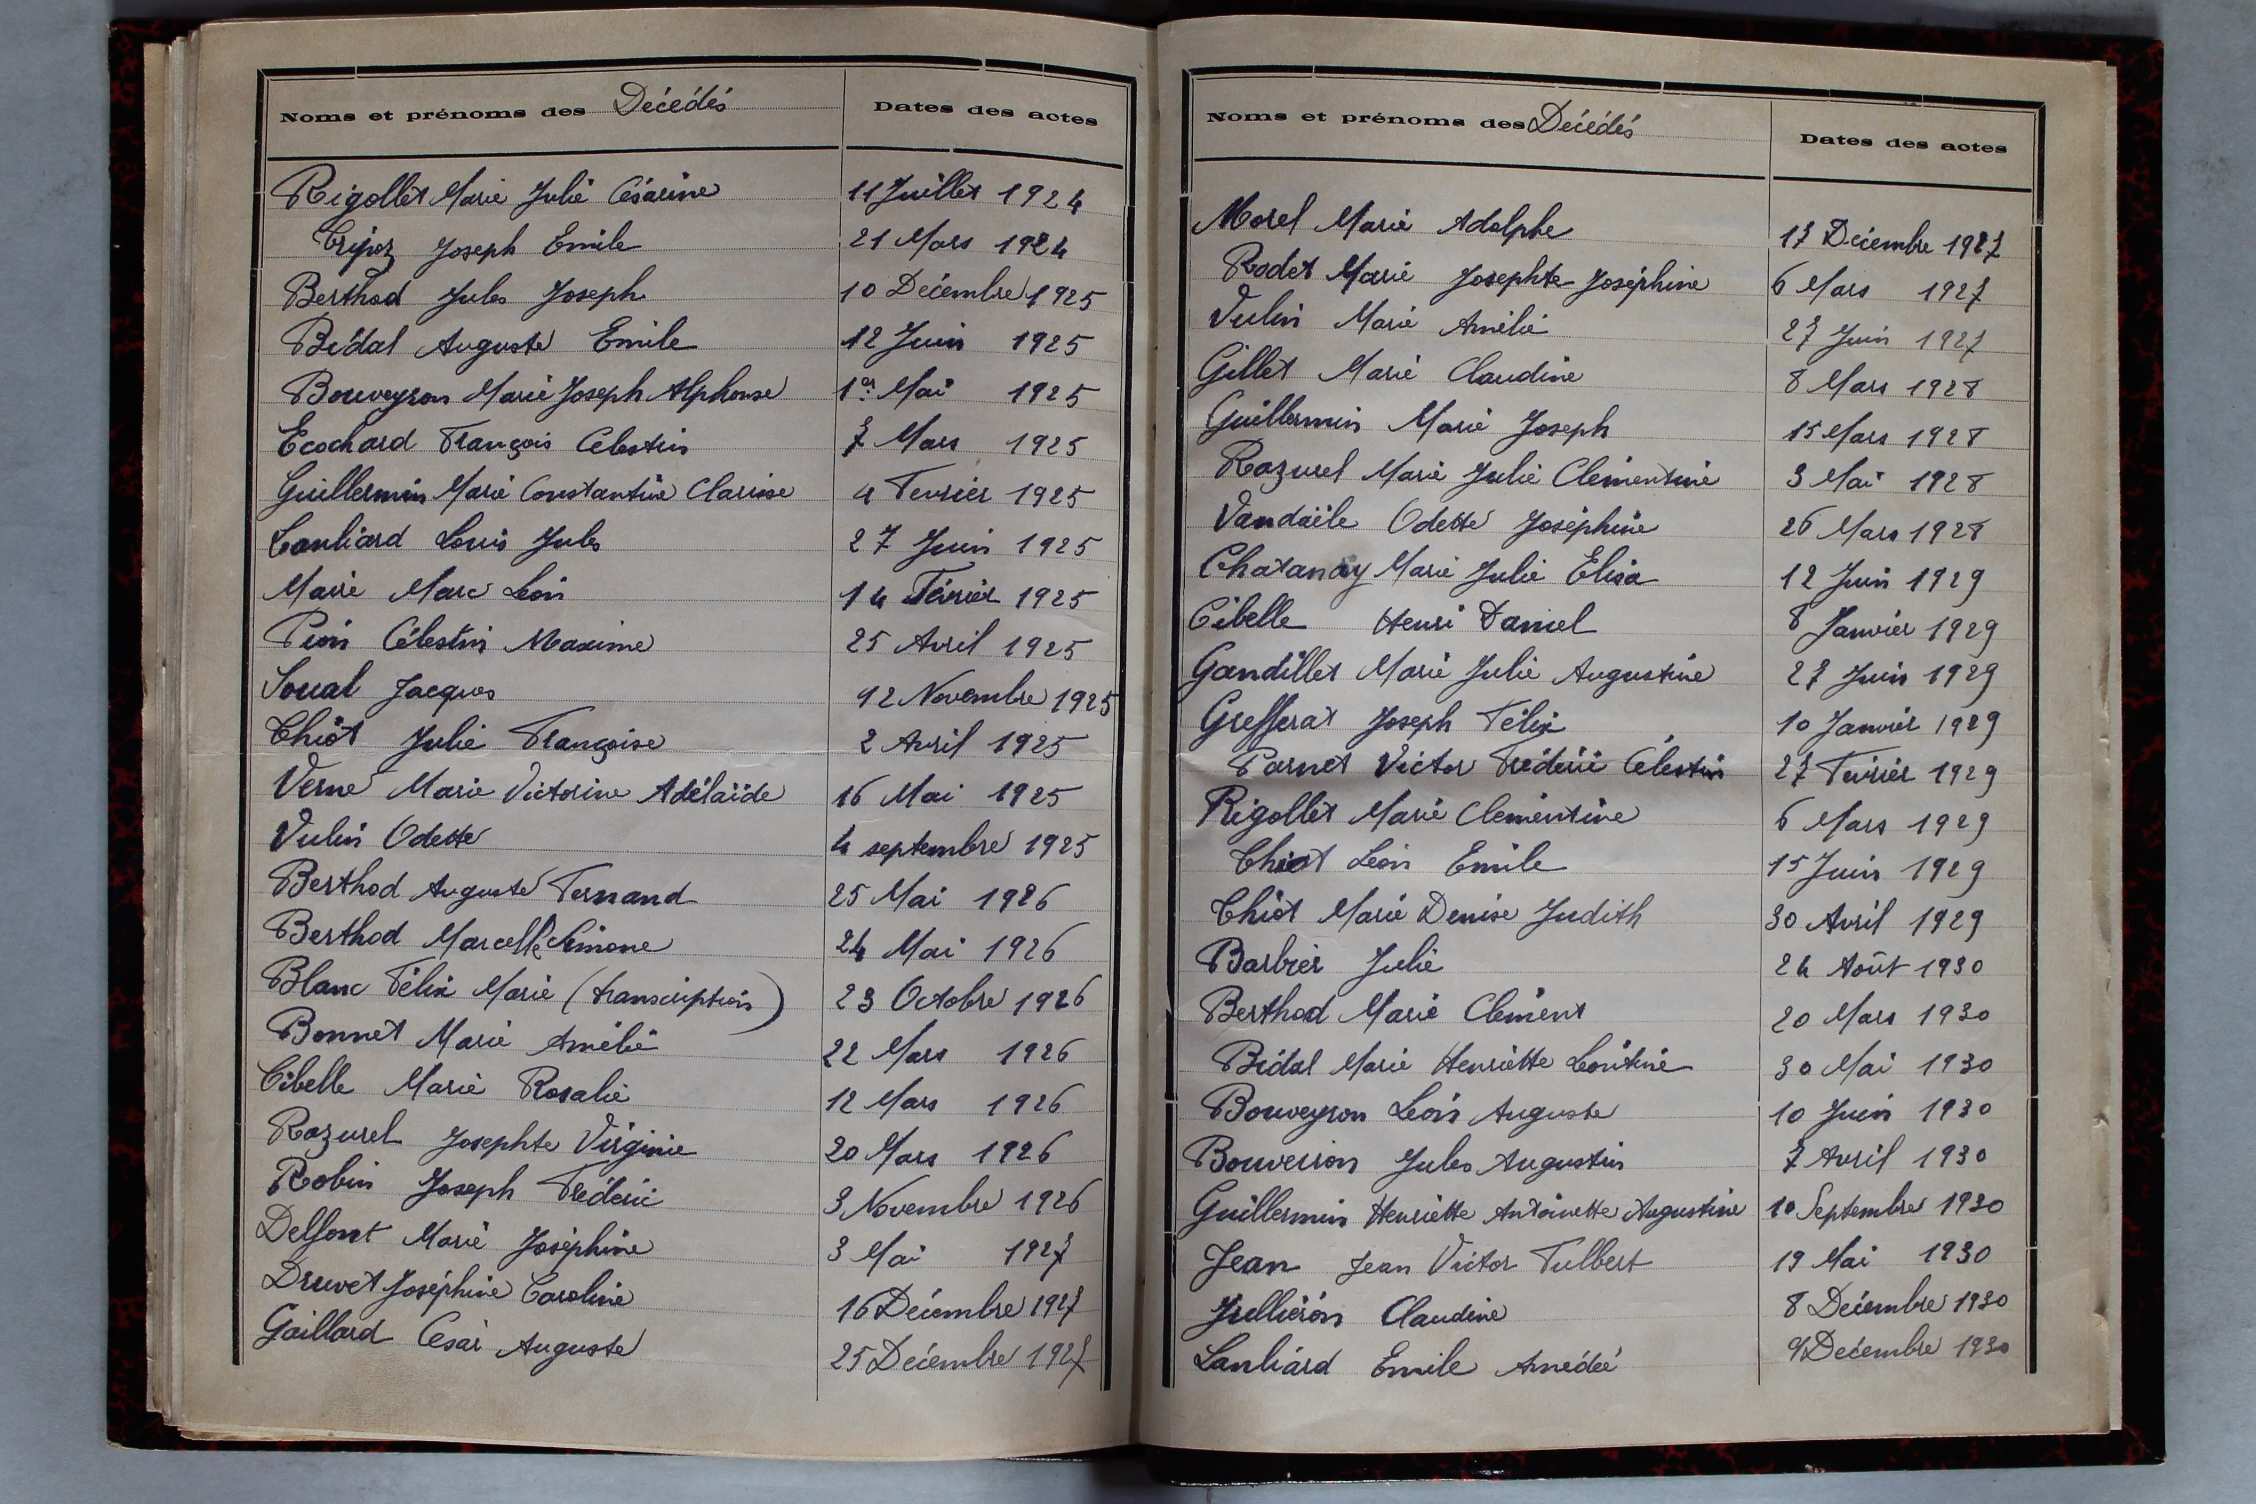 Noms et prénoms des Décédés Dates des actes
Rigollet Marie Julie Césarine 11 Juillet 1924
Tripoz Joseph Emile 21 Mars 1924
Berthod Jules Joseph 10 Décembre 1925
Bidal Auguste Emile 12 Juin 1925
Bouveyron Marie Joseph Alphonse 1er Mai 1925
Ecochard François Célestin 7 Mars 1925
Guillermin Marie Constantine Clarisse 4 Fevrier 1925
Lanliard Louis Jules 27 Juin 1925
Marie Marc Léon 14 Février 1925
Pion Célestin Maxime 25 Avril 1925
Soual Jacques 12 Novembre 1925
Chiot Julie Françoise 2 Avril 1925
Verne Marie Victorine Adélaïde 16 Mai 1925
Vulin Odette 4 septembre 1925
Berthod Auguste Fernand 25 Mai 1926
Berthod Marcelle Simone 24 Mai 1926
Blanc Félix Marie (transcription) 23 Octobre 1926
Bonnet Marie Amélie 22 Mars 1926
Cibelle Marie Rosalie 12 Mars 1926
Rozurel Josephte Virginie 20 Mars 1926
Robin Joseph Frédéric 3 Novembre 1926
Delfont Marie Joséphine 3 Mai 1927
Druvet Joséphine Caroline 16 Décembre 1927
Gaillard César Auguste 25 Décembre 1927
Noms et prénoms des Décédés Dates des actes
Morel Marie Adolphe 17 Décembre 1927
Rodet Marie Josephte Joséphine 6 Mars 1927
Vulin Marie Amélie 27 Juin 1927
Gillet Marie Claudine 8 Mars 1928
Guillermin Marie Joseph 15 Mars 1928
Rozurel Marie Julie Clémentine 3 Mai 1928
Vandaële Odette Joséphine 26 Mars 1928
Chatanay Marie Julie Elisa 12 Juin 1929
Cibelle Henri Daniel 8 Janvier 1929
Gandillet Marie Julie Augustine 27 Juin 1929
Grefferat Joseph Félix 10 Janvier 1929
Parnet Victor Frédéric Célestin 27 Février 1929
Rigollet Marie Clémentine 6 Mars 1929
Chiot Léon Emile 15 Juin 1929
Chiot Marie Denise Judith 30 Avril 1929
Barbier Julie 24 Août 1930
Berthod Marie Clément 20 Mars 1930
Bidal Marie Henriette Léontine 30 Mai 1930
Bouveyron Léon Auguste 10 Juin 1930
Bouveiron Jules Augustin 7 Avril 1930
Guillermin Henriette Antoinette Augustine 10 Septembre 1930
Jean Jean Victor Fulbert 19 Mai 1930
Jullieron Claudine 8 Décembre 1930
Lanliard Emile Amédée 9 Décembre 1930